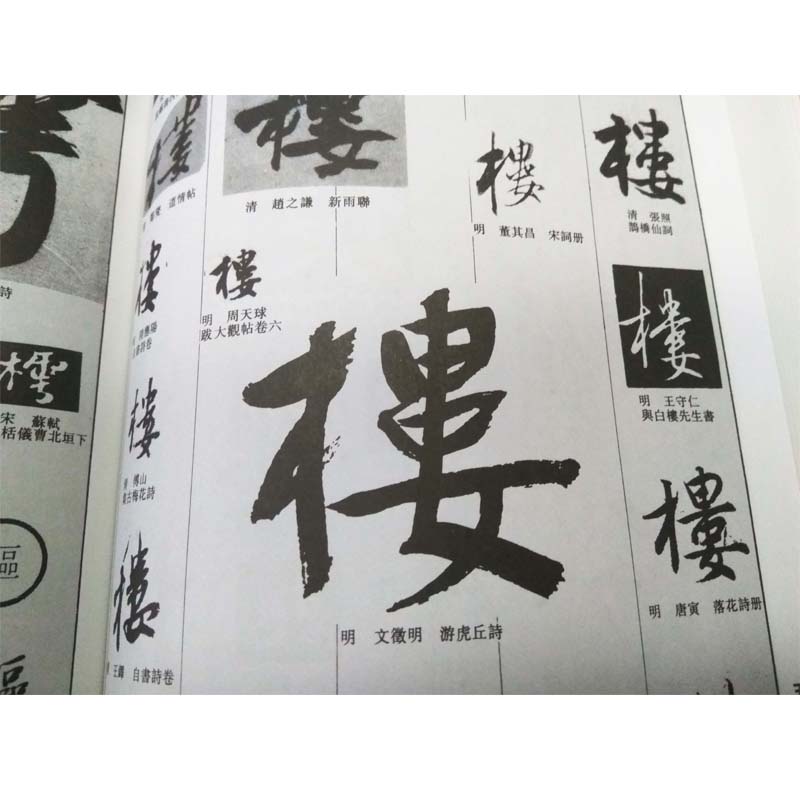 樓
清 張照
鵲橋仙詞
樓
明 王守仁
與白樓先生書
樓
明 唐寅 落花詩册
樓
明 董其昌 宋詞册
樓
清 趙之謙 新雨聯
樓
明 周天球
跋大觀帖卷六
樓
明 文徵明 游虎丘詩
樓
道情帖
樓
自書詩卷
樓
傅山
古梅花詩
樓
王鐸 自書詩卷
詩
樗
宋 蘇軾
括儀曹北垣下
區
區